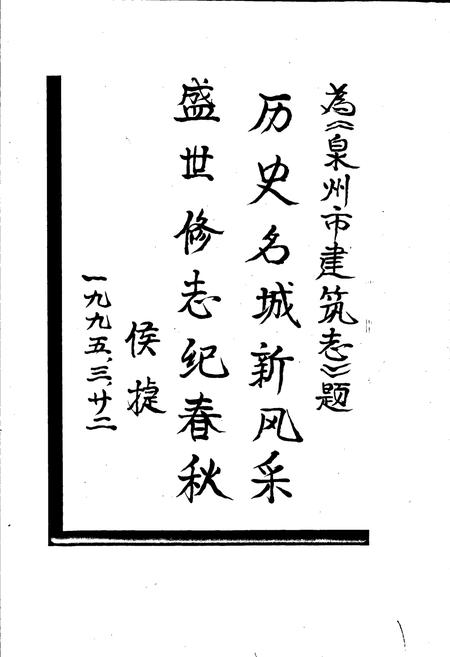 為《泉州市建筑志》题
历史名城新风采
盛世修志纪春秋
侯捷
一九九五、三、廿二